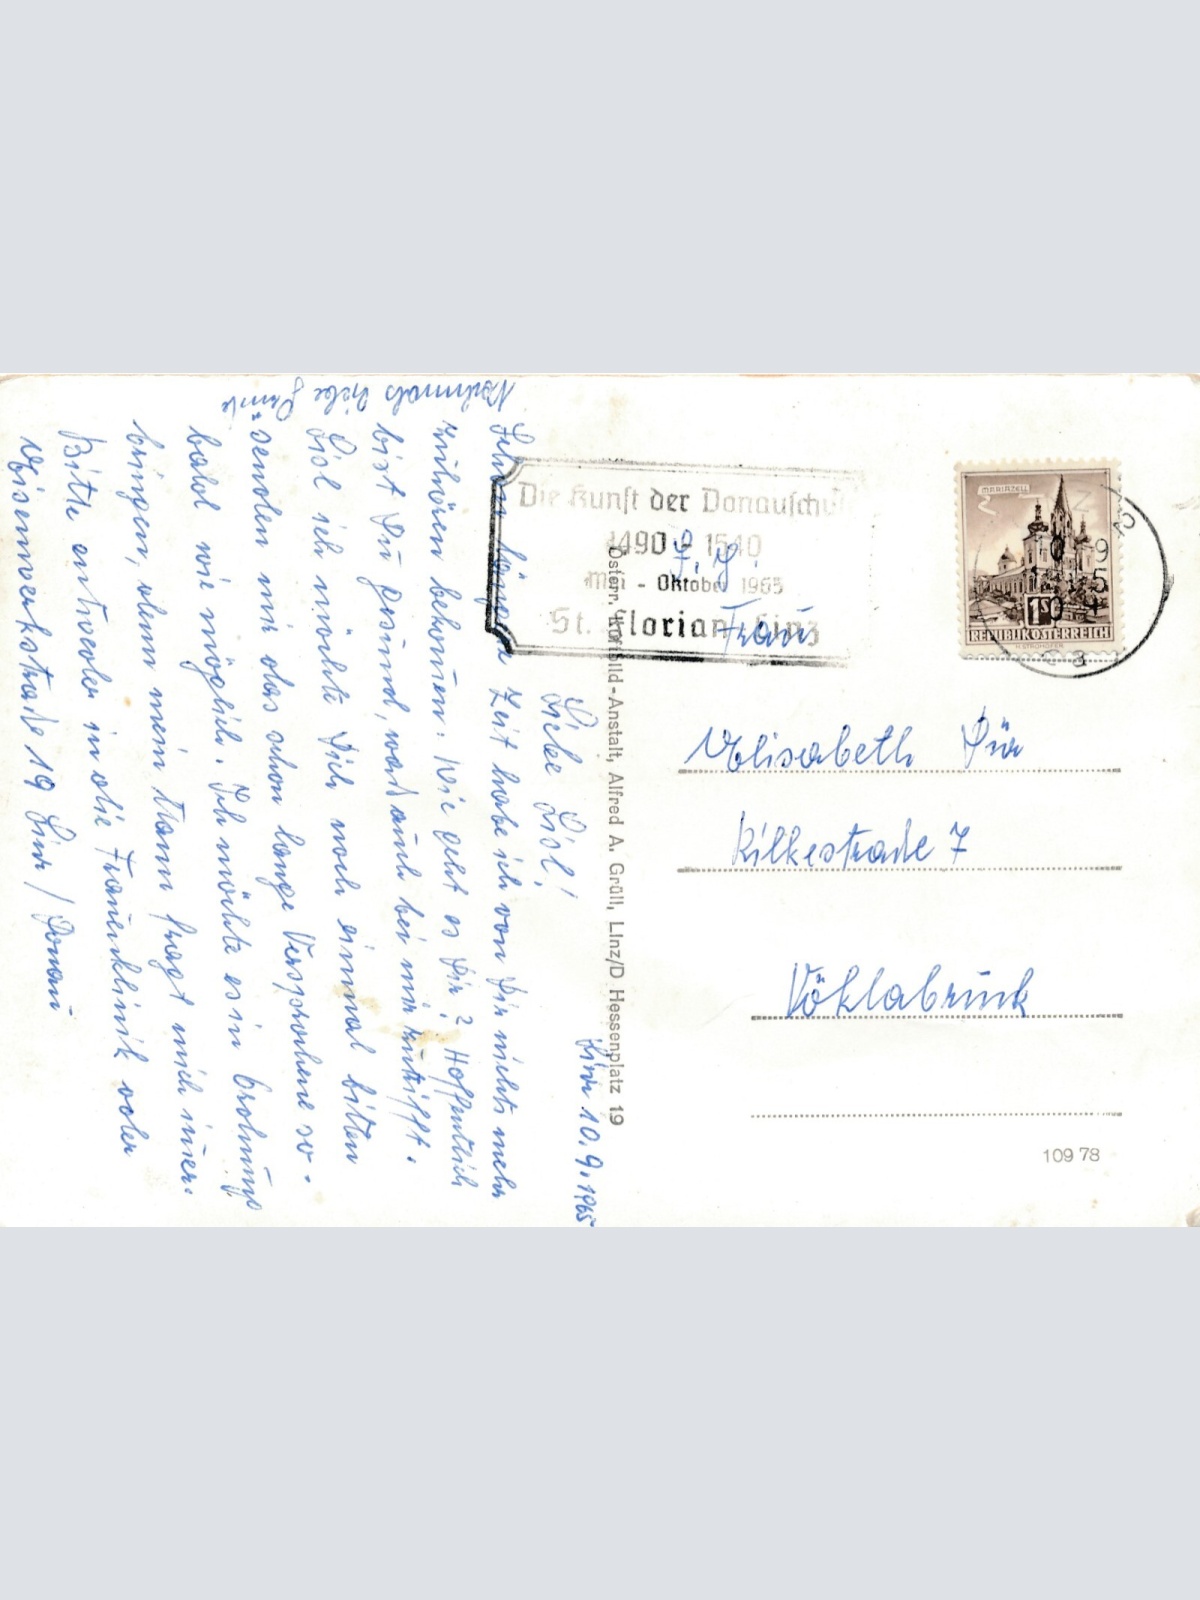 Linz 10.9.1965
Liebe Lisl!
Schon längere Zeit habe ich von Dir nichts mehr
zuhören bekommen. Wie geht es Dir? Hoffentlich
bist Du gesund, was auch bei mir zutrifft.
Lisl ich möchte Dich noch einmal bitten
senden mir das schon lange Versprochene so
bald wie möglich. Ich möchte es in Ordnung
bringen, denn mein Mann fragt mich immer.
Bitte entweder in die Frauenklinik oder
Eisenwerkstraße 19 Linz / Donau
Nochmals liebe
Die Kunst der Donauschule
1490 - 1540
Mai - Oktober 1965
St. Florian Linz
MARIAZELL
1S
REPUBLIK ÖSTERREICH
H. STROHOFER
Österr. Luftbild-Anstalt, Alfred A. Grüll, Linz/D Hessenplatz 19
Frau
Elisabeth
Rilkestraße 7
Vöklabruck
109 78